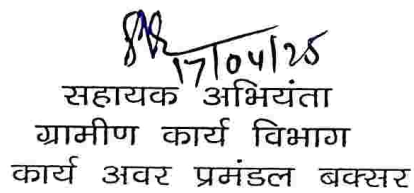 17/04/25
सहायक अभियंता
ग्रामीण कार्य विभाग
कार्य अवर प्रमंडल बक्सर